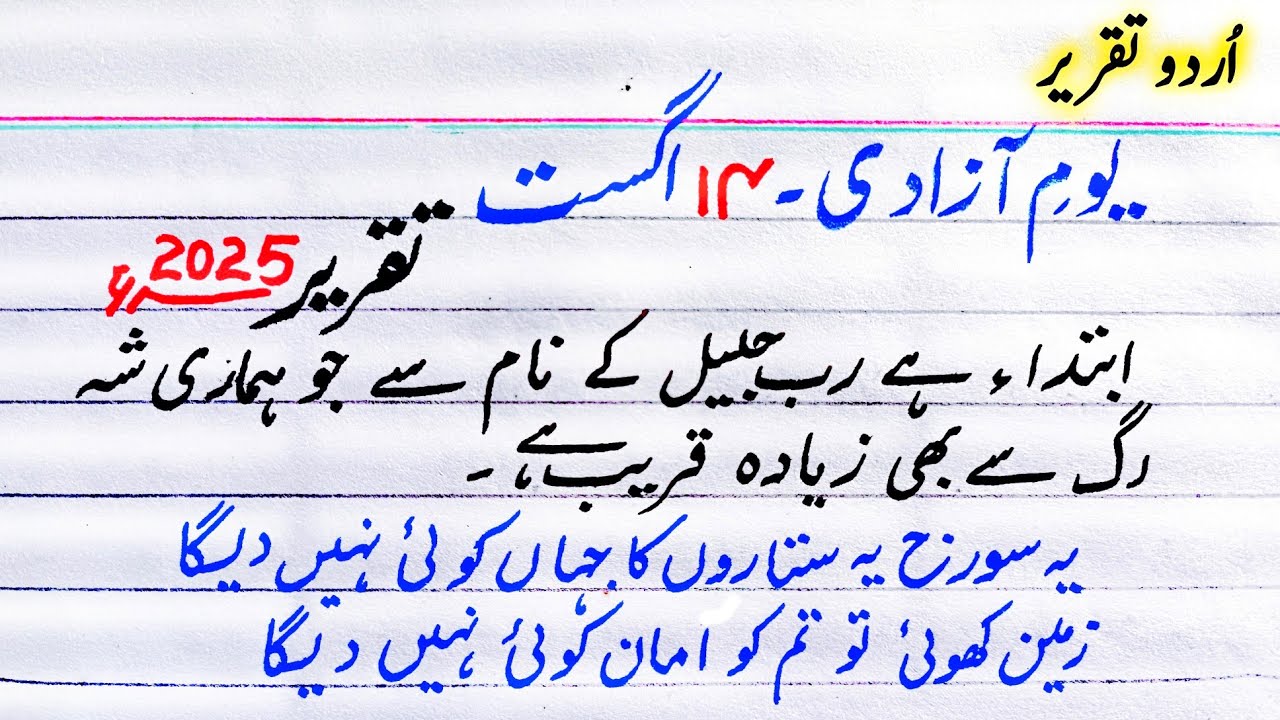 اُردو تقریر
یومِ آزادی ۔ ۱۴ اگست
تقریر 2025ء
ابتداء ہے رب جلیل کے نام سے جو ہماری شہ
رگ سے بھی زیادہ قریب ہے ۔
یہ سورج یہ ستاروں کا جہاں کوئی نہیں دیگا
زمین کھوئی تو تم کو امان کوئی نہیں دیگا